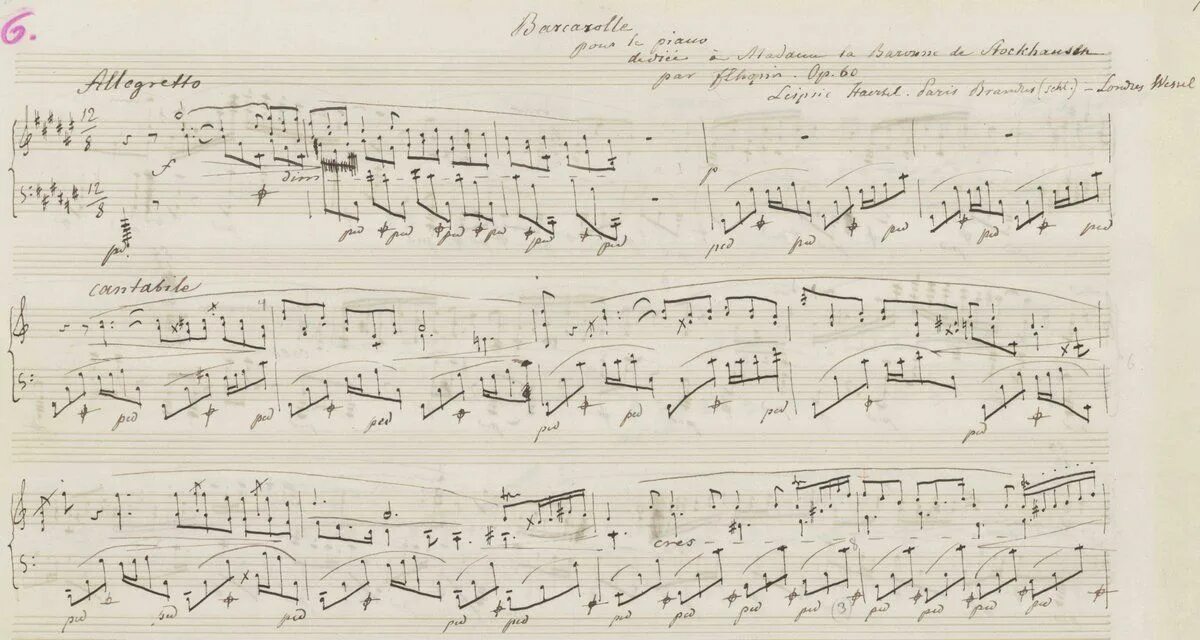 6.
Barcarolle
pour le piano
dediée à Madame la Baronne de Stockhausen
par FChopin. Op. 60
Leipsic Haertel. Paris Brandus (Schl.) – Londres Wessel
Allegretto
12 8
f
dim
p
12 8
ped ped ped ped ped ped ped ped ped ped ped
cantabile
4
ped ped ped ped ped ped ped
cres
8
ped ped ped ped ped ped ped ped ped ped
(3)